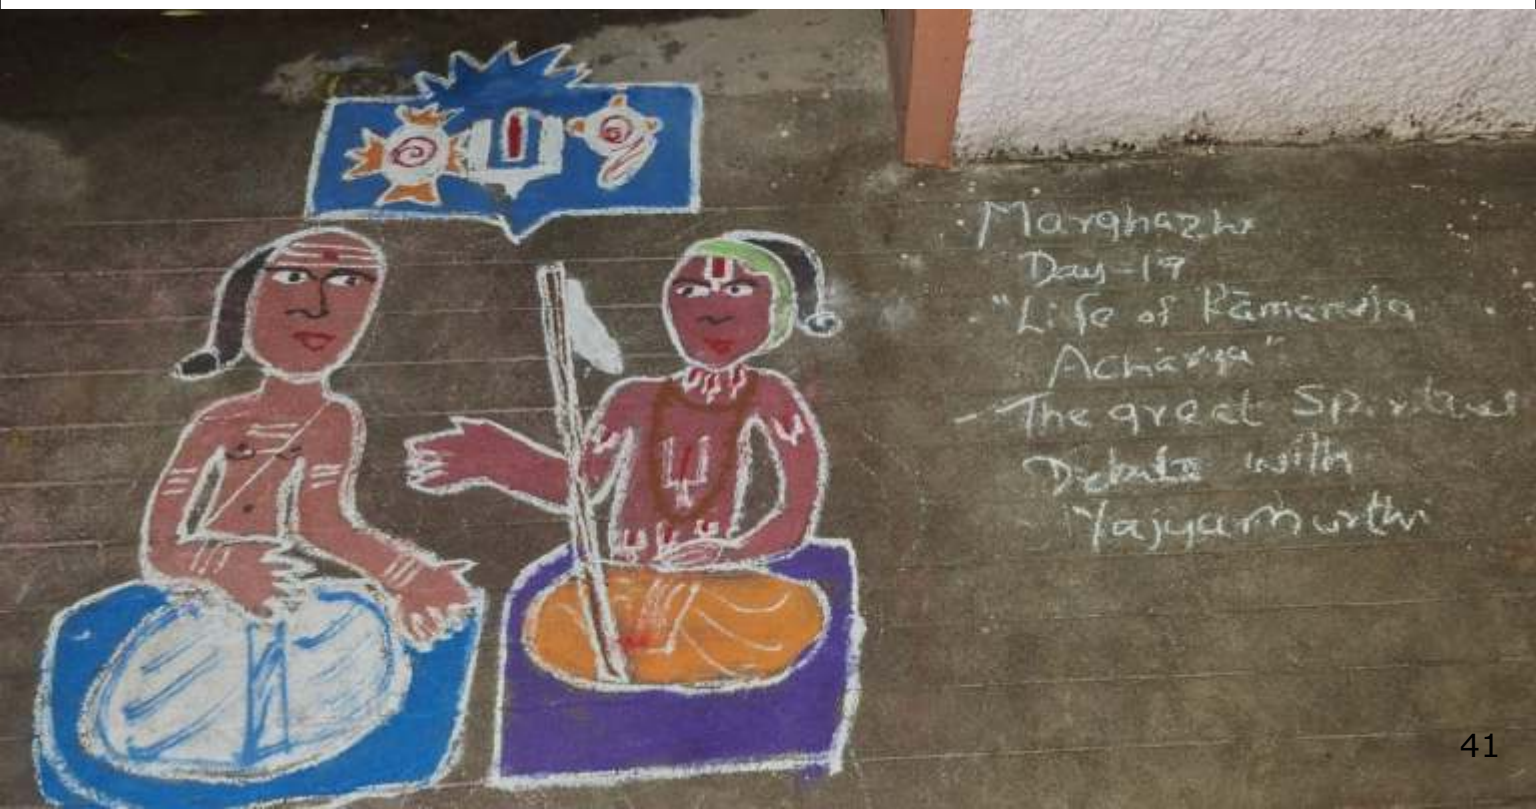 Marghazhi
Day-19
"Life of Rāmānuja
Achārya"
- The great Spiritual
Debate with
Yajyamurthi
41